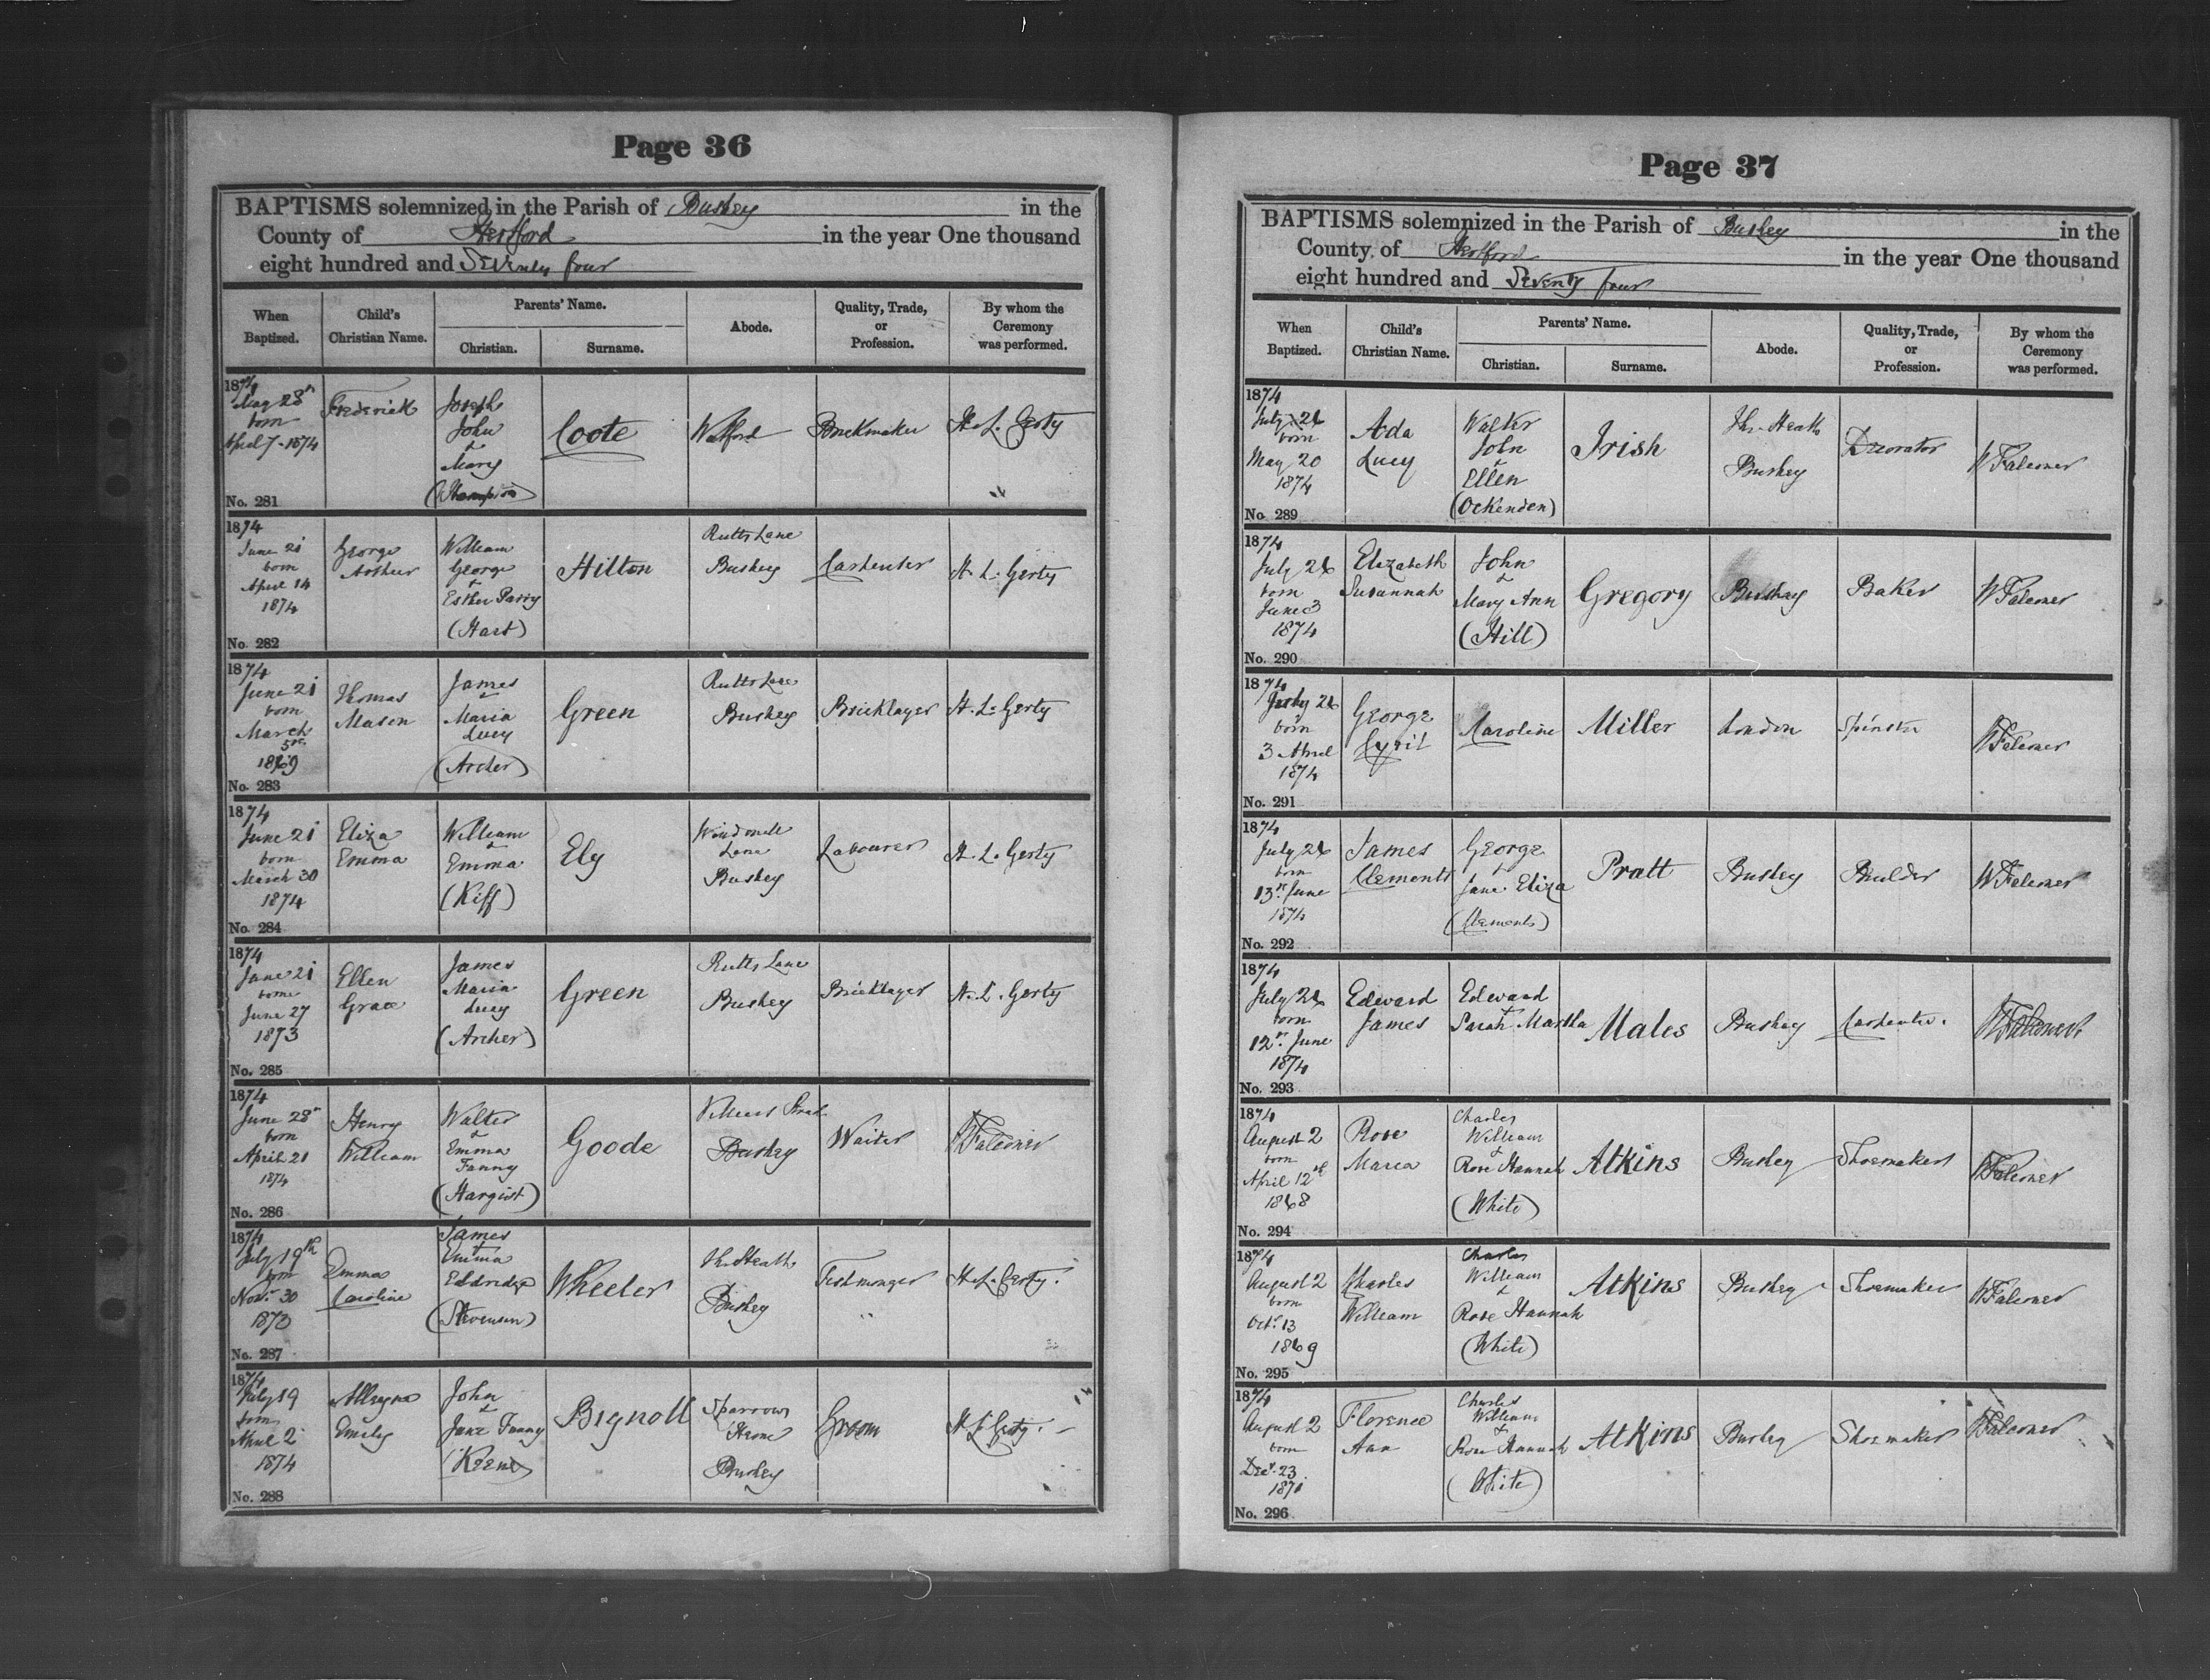 Page 36
BAPTISMS solemnized in the Parish of Bushey in the
County of Hertford in the year One thousand
eight hundred and Seventy four
When Baptized.
Child's Christian Name.
Parents' Name.
Christian.
Surname.
Abode.
Quality, Trade, or Profession.
By whom the Ceremony was performed.
1874
May 28th
born
April 7 - 1874
No. 281
Frederick
Joseph
John
+
Mary
(Hampton)
Coote
Watford
Brickmaker
H. L. Gerty
1874
June 21
born
April 14
1874
No. 282
George
Arthur
William
George
+
Esther Parry
(Hart)
Hilton
Rutts Lane
Bushey
Carpenter
H. L. Gerty
1874
June 21
born
March
5th
1869
No. 283
Thomas
Mason
James
+
Maria
Lucy
(Archer)
Green
Rutts Lane
Bushey
Bricklayer
H. L. Gerty
1874
June 21
born
March 30
1874
No. 284
Eliza
Emma
William
+
Emma
(Kiff)
Ely
Windmill
Lane
Bushey
Labourer
H. L. Gerty
1874
June 21
born
June 27
1873
No. 285
Ellen
Grace
James
Maria
Lucy
(Archer)
Green
Rutts Lane
Bushey
Bricklayer
H. L. Gerty
1874
June 28th
born
April 21
1874
No. 286
Henry
William
Walter
+
Emma
Fanny
(Hargist)
Goode
Villiers Street
Bushey
Waiter
W Falconer
1874
July 19th
born
Novr 30
1873
No. 287
Emma
Caroline
James
+
Emma
Eldridge
(Stevenson)
Wheeler
The Heath
Bushey
H. L. Gerty.
1874
July 19
born
April 2
1874
No. 288
Emily
John
+
Jane Fanny
(Keene)
Bignoll
Sparrows
Herne
Bushey
Groom
H L Gerty.
Page 37
BAPTISMS solemnized in the Parish of Bushey in the
County of Hertford in the year One thousand
eight hundred and Seventy four
When Baptized.
Child's Christian Name.
Parents' Name.
Christian.
Surname.
Abode.
Quality, Trade, or Profession.
By whom the Ceremony was performed.
1874
July 26
born
May 20
1874
No. 289
Ada
Lucy
Walter
John
+
Ellen
(Ockenden)
Irish
The Heath
Bushey
Decorator
W Falconer
1874
July 26
born
June 3
1874
No. 290
Elizabeth
Susannah
John
+
Mary Ann
(Hill)
Gregory
Bushey
Baker
W Falconer
1874
July 26
born
3 April
1874
No. 291
George
Cyril
Caroline
Miller
London
Spinster
W Falconer
1874
July 26
born
13th June
1874
No. 292
James
Clements
George
+
Jane Eliza
(Clements)
Pratt
Bushey
Builder
W Falconer
1874
July 26
born
12th June
1874
No. 293
Edward
James
Edward
+
Sarah Martha
Males
Bushey
Carpenter.
W Falconer
1874
August 2
born
April 12th
1868
No. 294
Rose
Maria
Charles
William
+
Rose Hannah
(White)
Atkins
Bushey
Shoemaker
W Falconer
1874
August 2
born
Octr 13
1869
No. 295
Charles
William
Charles
William
+
Rose Hannah
(White)
Atkins
Bushey
Shoemaker
W Falconer
1874
August 2
born
Decr 23
1871
No. 296
Florence
Ann
Charles
William
+
Rose Hannah
(White)
Atkins
Bushey
Shoemaker
W Falconer